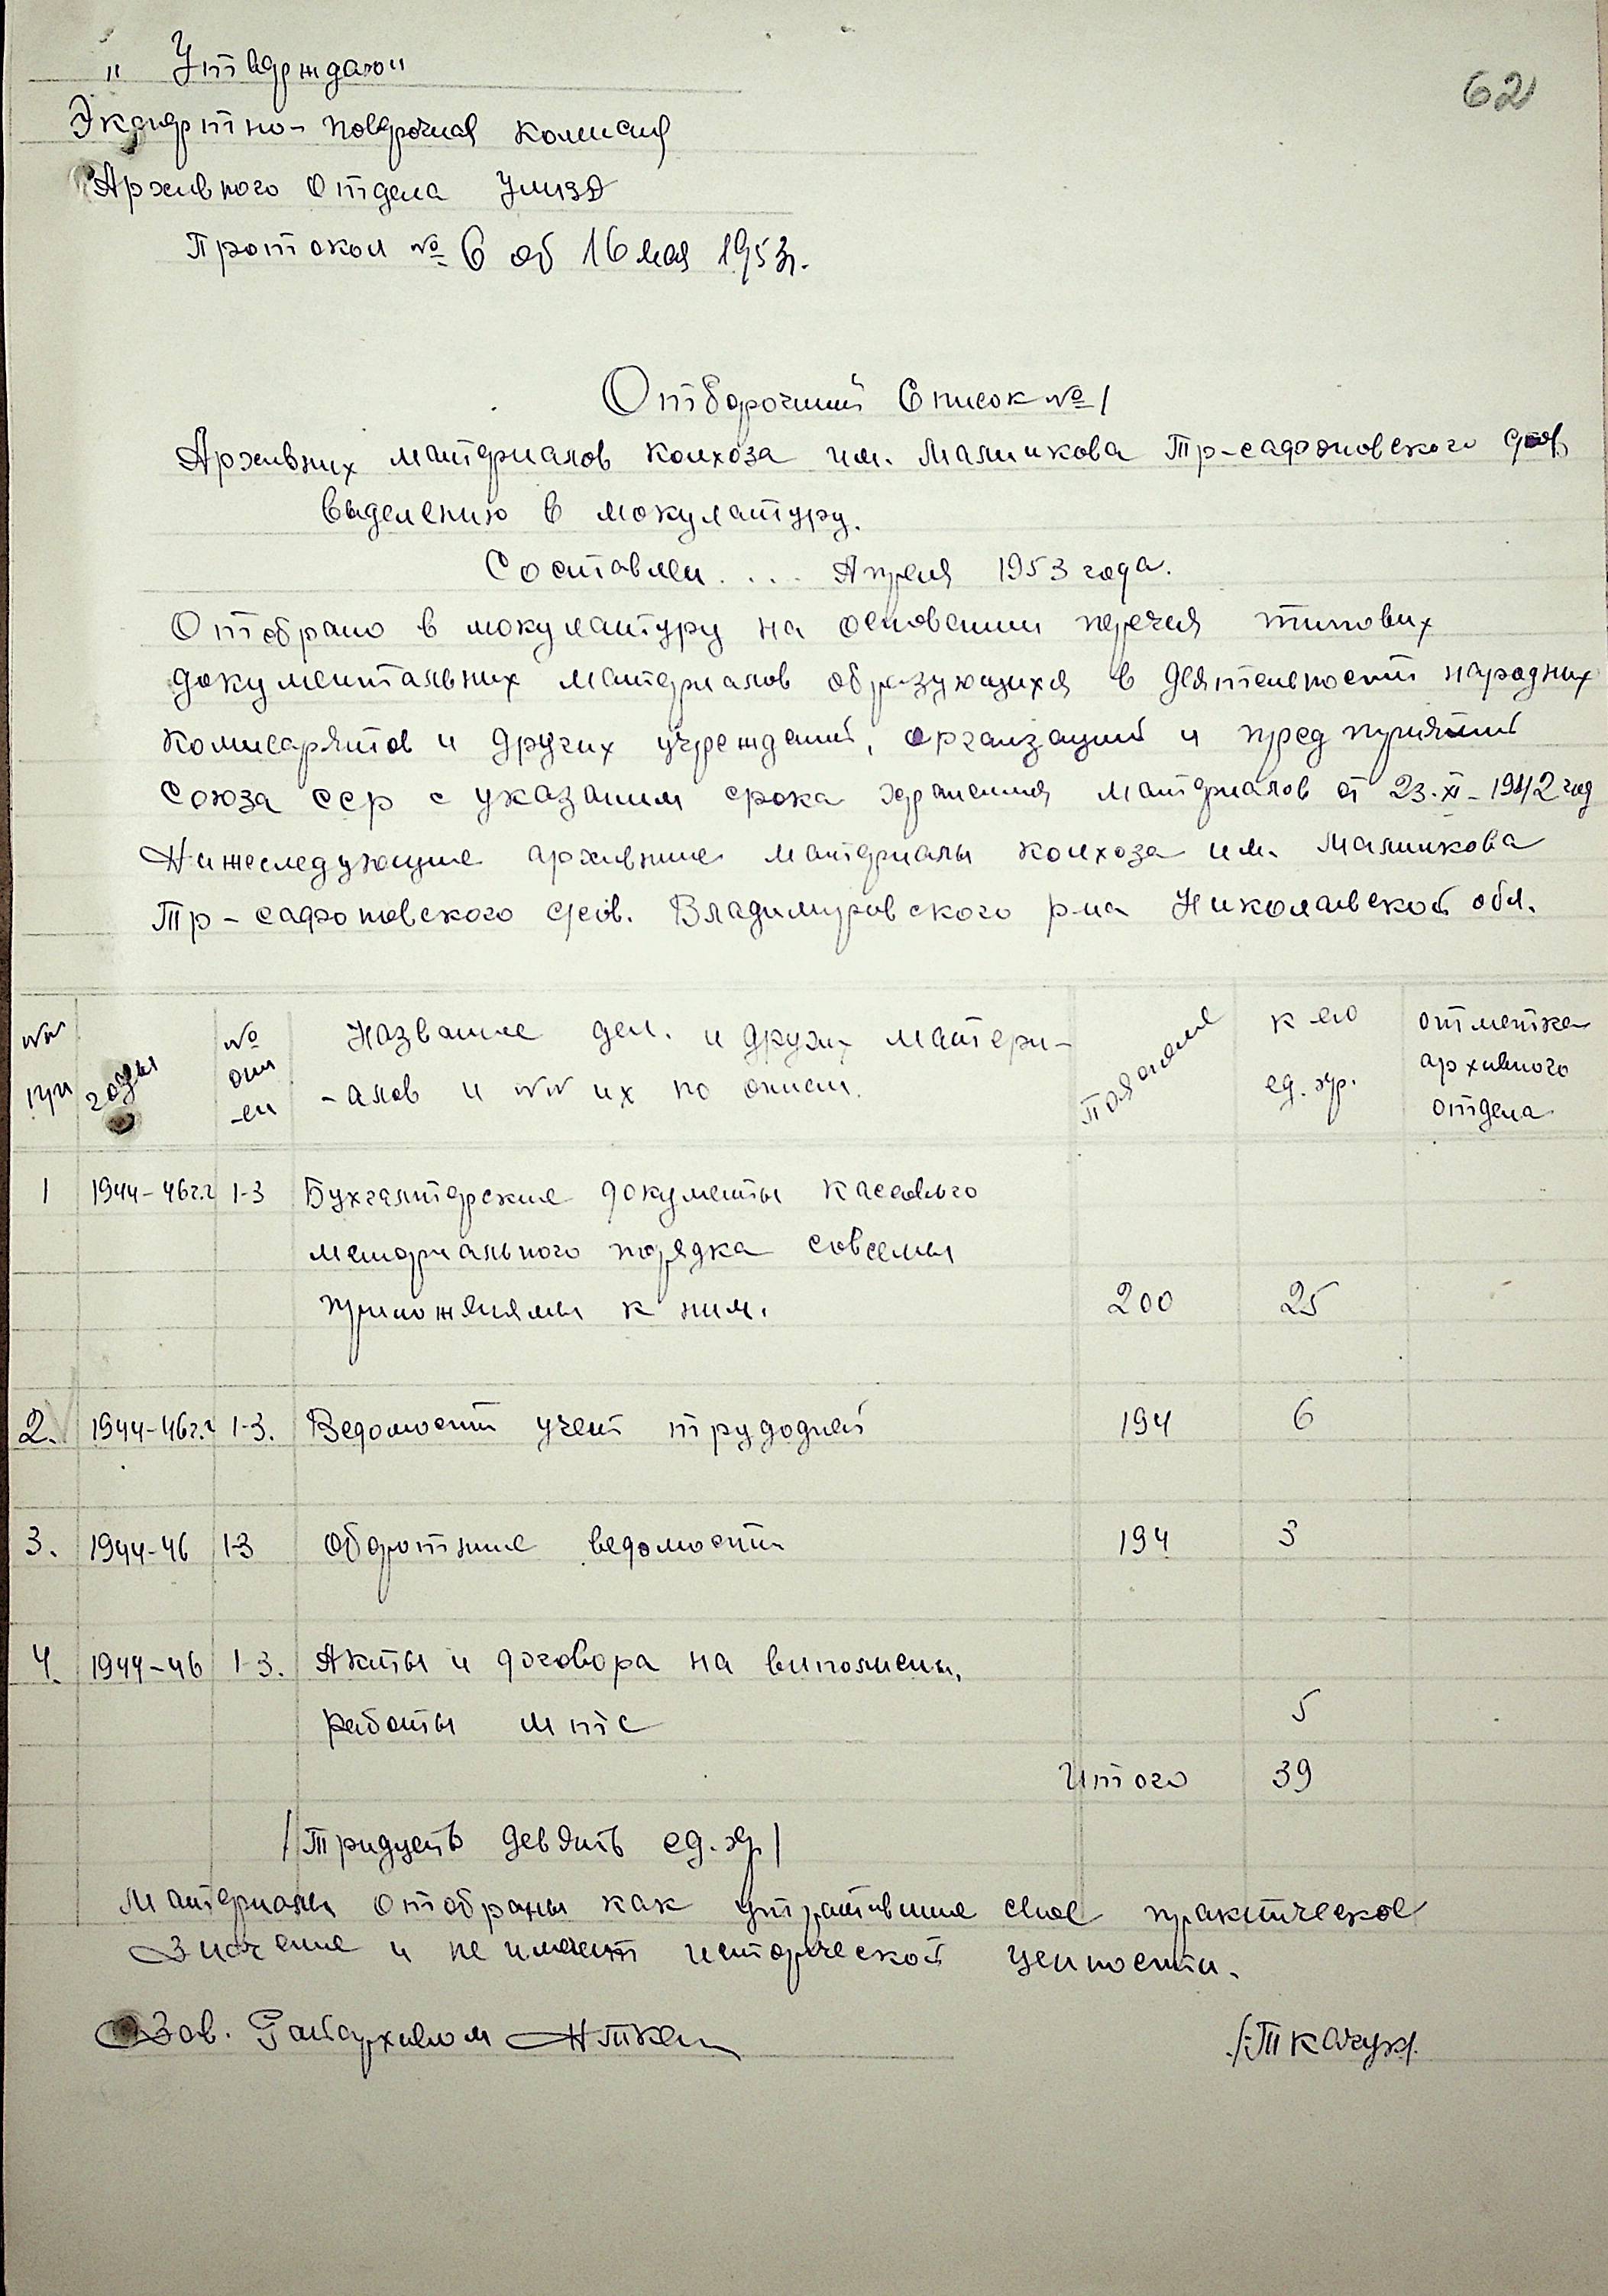 62
„ Утверждаю"
Экспертно-поверочная комисия
Архивного Отдела УМВД
Протокол № 6 об 16 мая 1953г.
Отборочний Список № 1
Архивних материалов колхоза им. Маленкова Тр-сафоновского с/сов
выделению в мокулатуру.
Составлен .... Апреля 1953 года.
Отобрано в мокулатуру на основании перечня типових
документальних материалов образующихся в деятельности народних
комисарятов и других учреждений, организаций и предприятий
Союза сср с указаним срока хранения материалов от 23-XI-1942 год
Нижеследующие архивние материалы колхоза им. Маленкова
Тр-сафоновского с/сов. Владимировского р-на Николаевской обл.
№№ п/п годы № опи-си Название дел. и других матери-алов и №№ их по описи. к-во ед. хр. отметка архивного отдела
1 1944-46г.г 1-3 Бухгалтерские документы касового
мемориального порядка совсемы
приложениямы к ним. 200 25
2. 1944-46г.г 1-3. Ведомости учет трудодней 194 6
3. 1944-46 1-3 Оборотние ведомости 194 3
4. 1944-46 1-3. Акты и договора на виполнены,
работы мтс 5
Итого 39
/Тридцеть девять ед. хр/
Материалы отобраны как утратившие свое практическое
значение и не имеют исторической ценности.
Зав. Райархивом /Ткачук/.